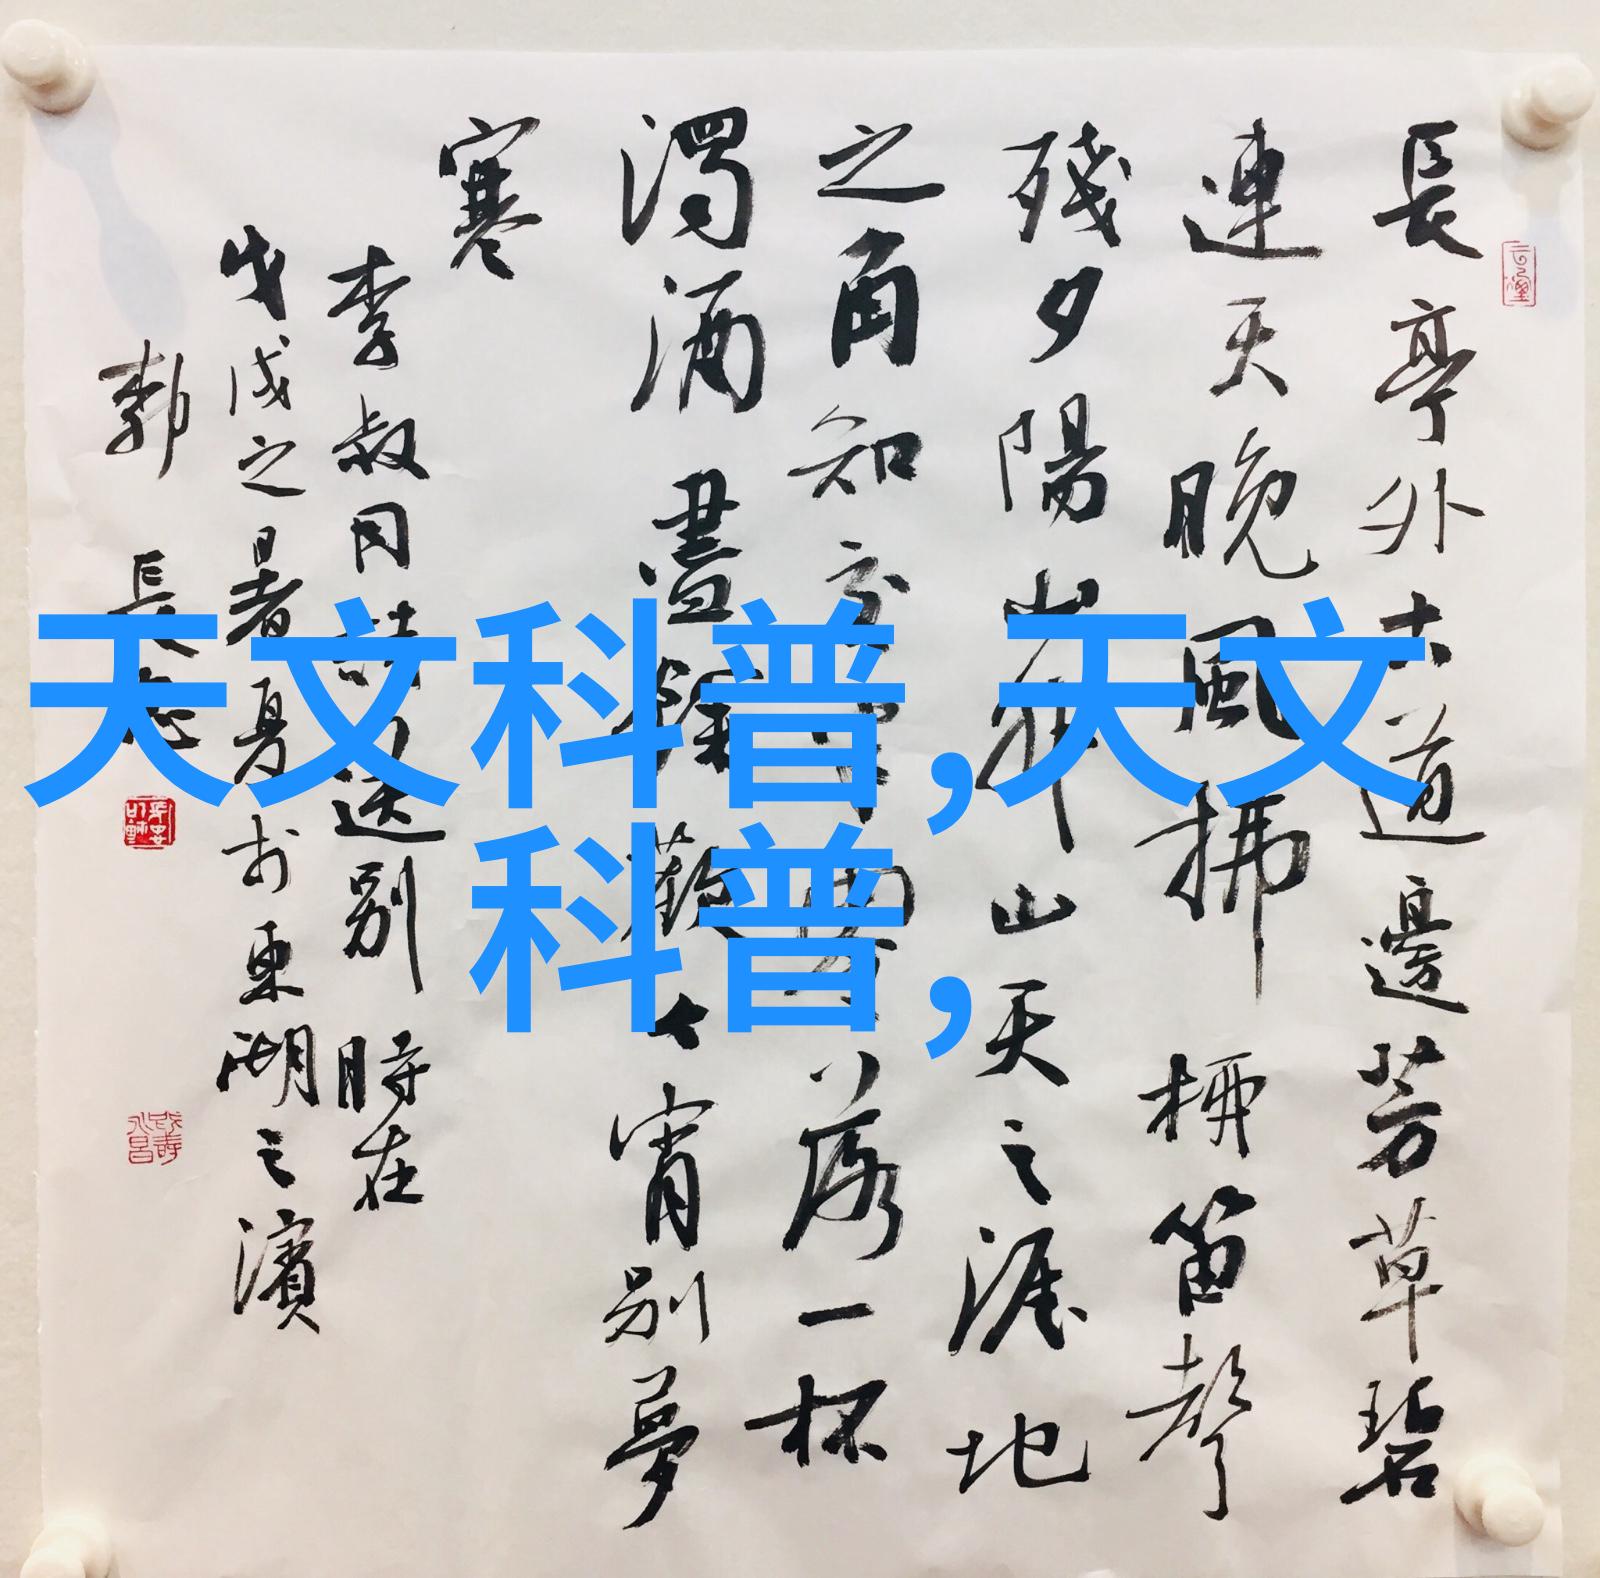 長亭外古道邊芳草碧
連天晚風拂柳笛聲
殘夕陽山外山天之涯地
之角知交半零落一杯
濁酒盡餘歡今宵別夢
寒
李叔同詩送別 時在
戊戌之暑夏於東湖之濱
郭長志
天文科普,天文
科普,